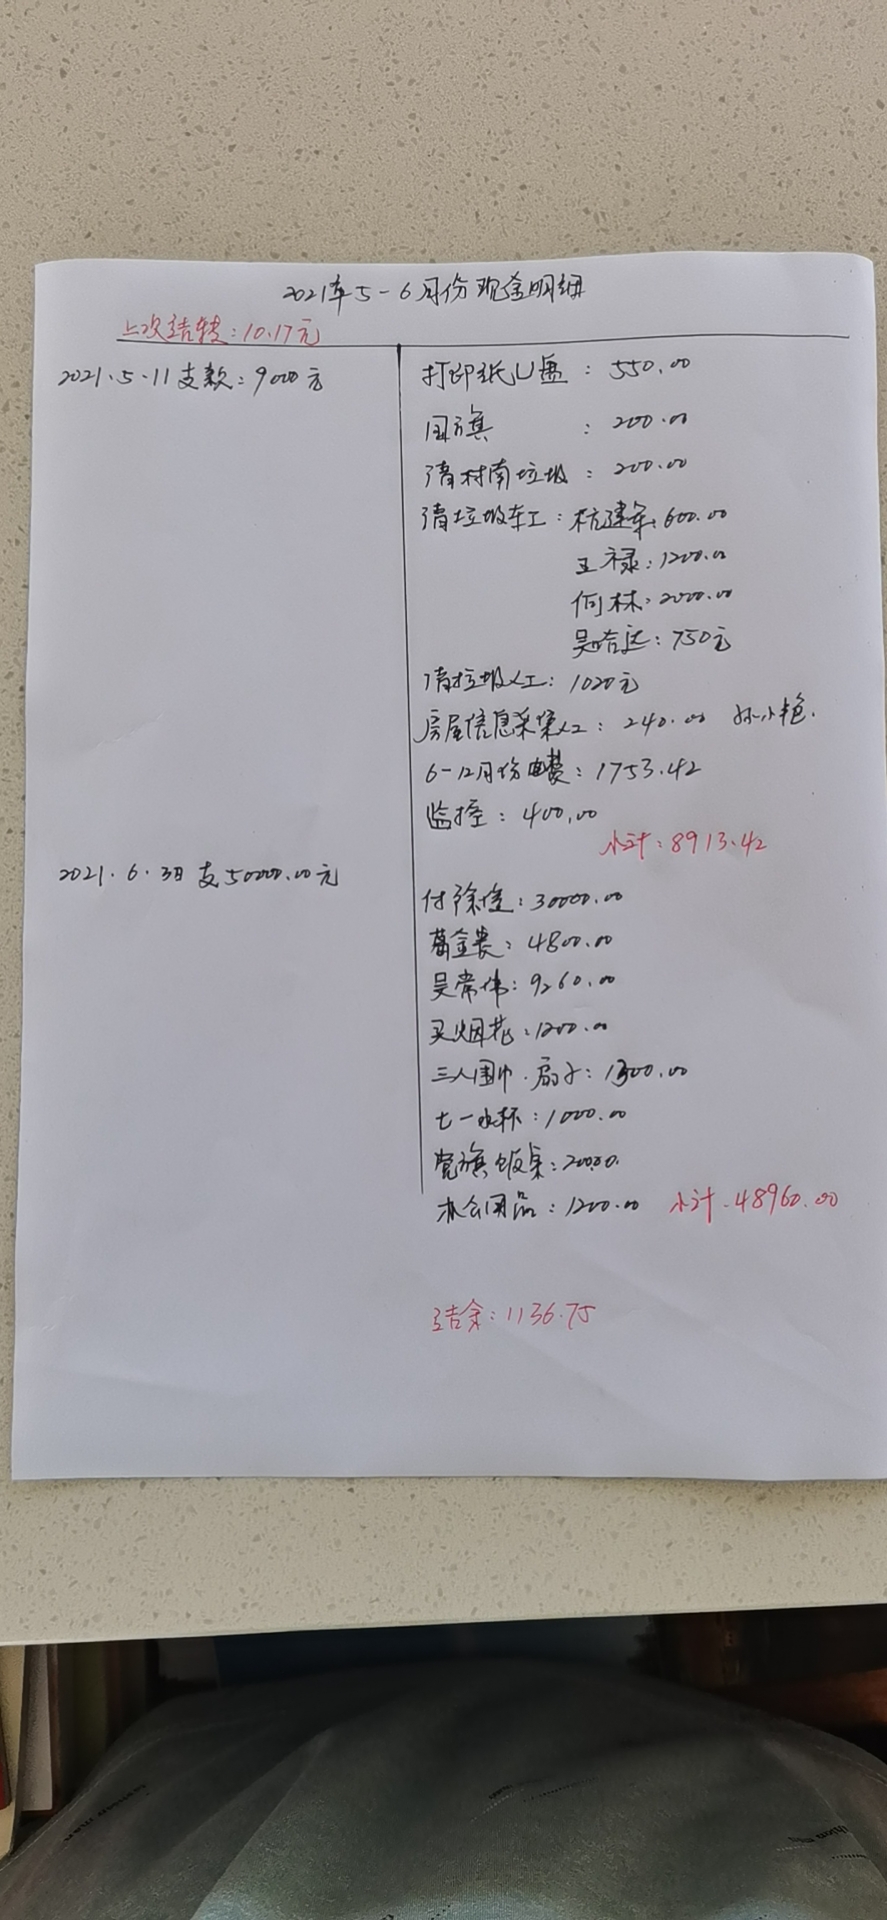 2021年5-6月份现金明细
上次结转:10.17元
2021.5.11支款:9000元
打印纸U盘:550.00
国旗:200.00
清村南垃圾:200.00
清垃圾车工:杭建军:600.00
王禄:1200.00
何林:2000.00
吴哈达:750元
清垃圾人工:1020元
房屋信息采集人工:240.00 孙小艳.
6-12月份电费:1753.42
监控:400.00
小计:8913.42
2021.6.3日支50000.00元
付徐:30000.00
葛金贵:4800.00
吴常伟:9260.00
买烟花:1200.00
三人围巾.扇子:1300.00
七一水杯:1000.00
党旗饭桌:200.00.
办公用品:1200.00 小计.48960.00
结余:1136.75